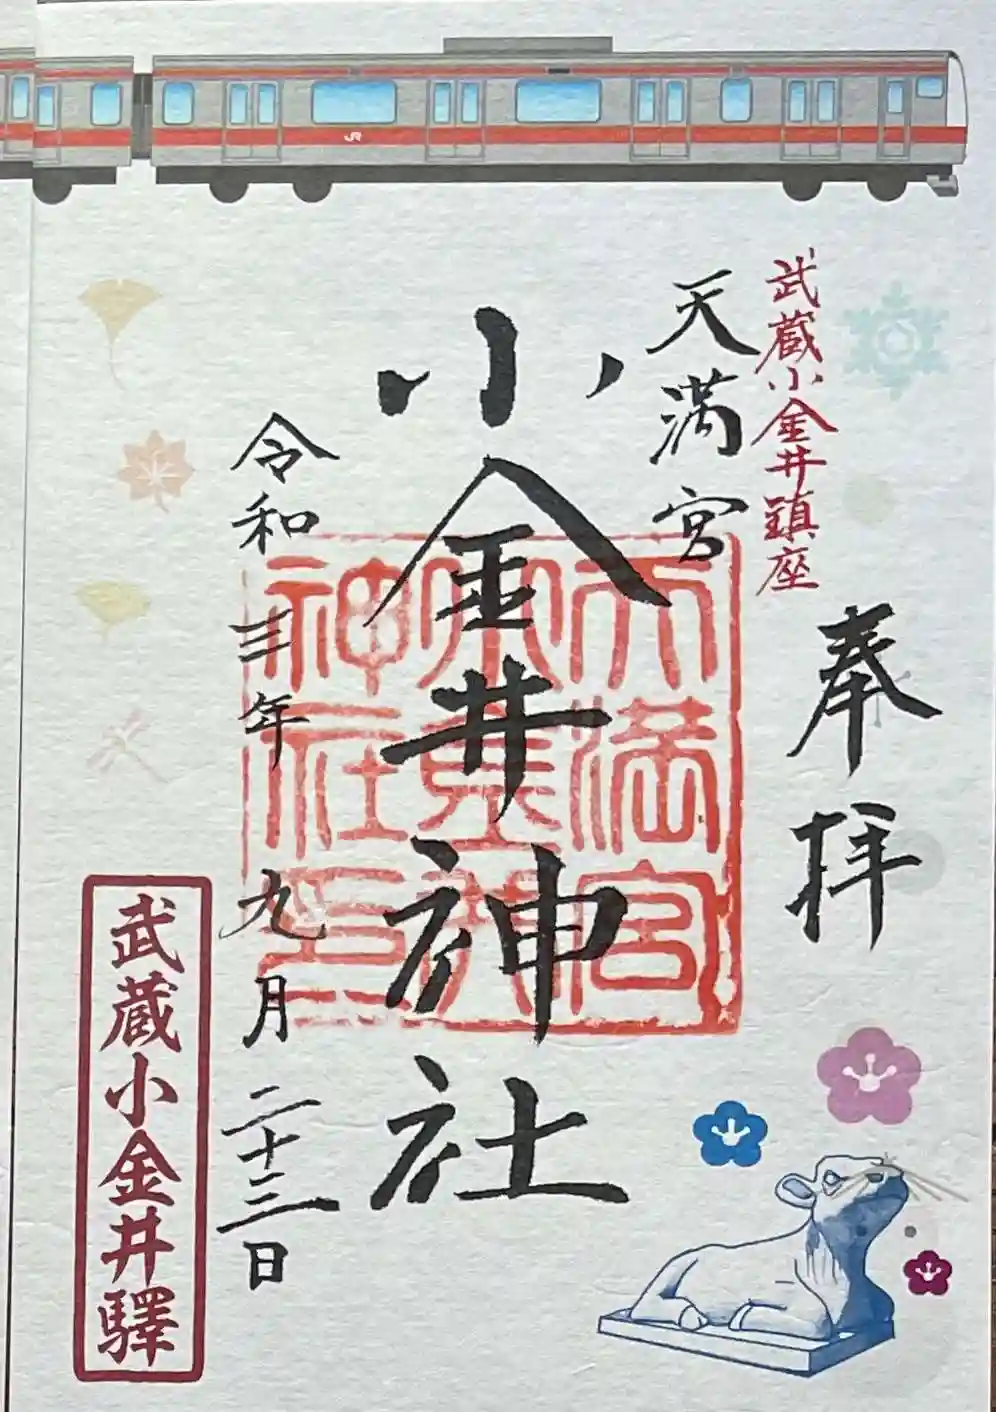 JR
武蔵小金井鎮座
奉拝
天満宮
小金井神社
天満宮
神社印
令和三年九月二十三日
武蔵小金井驛